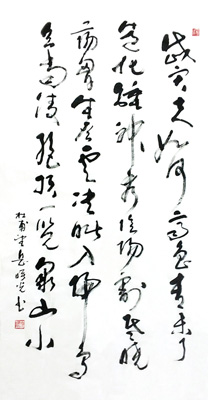 岱宗夫如何齊魯青未了
造化鍾神秀陰陽割昏曉
蕩胸生層雲決眦入歸鳥
會當凌絕頂一覽衆山小
杜甫望岳 書